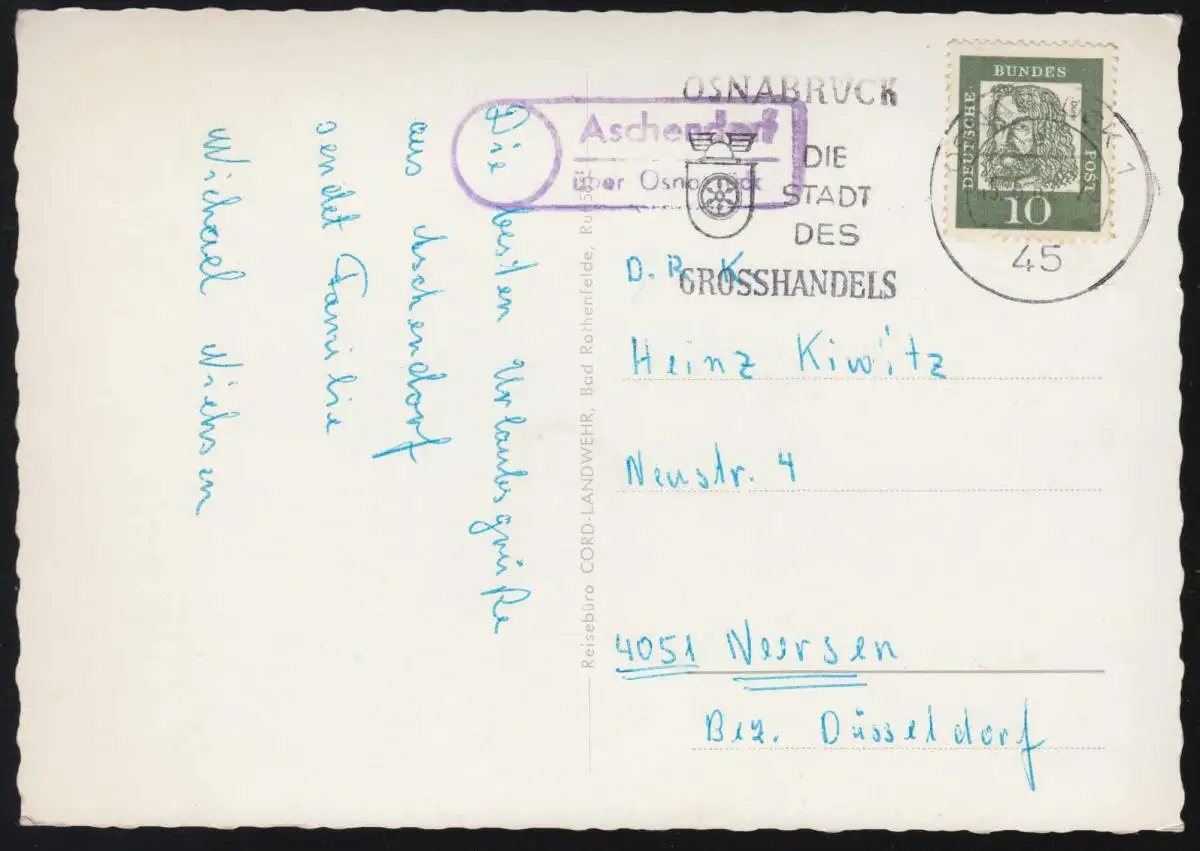 Die besten Urlaubsgrüße
aus Aschendorf
sendet Familie
Michael Niehsen
Aschendorf
über Osnabrück
OSNABRÜCK
DIE
STADT
DES
GROSSHANDELS
DEUTSCHE
BUNDES
POST
10
45
Reisebüro CORD-LANDWEHR, Bad Rothenfelde,
D. R. K
Heinz Kiwitz
Neustr. 4
4051 Neersen
Bez. Düsseldorf